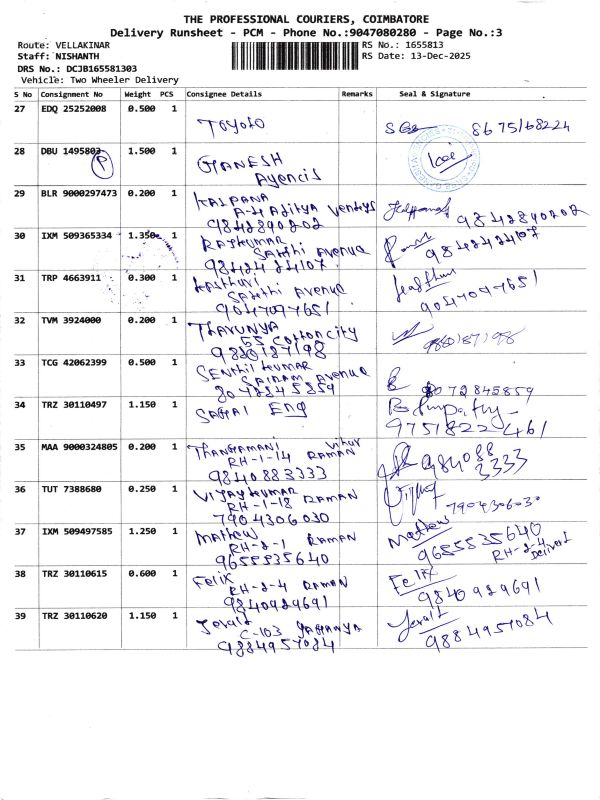 THE PROFESSIONAL COURIERS, COIMBATORE
Delivery Runsheet - PCM - Phone No.:9047080280 - Page No.:3
Route: VELLAKINAR
RS No.: 1655813
Staff: NISHANTH
RS Date: 13-Dec-2025
DRS No.: DCJB165581303
Vehicle: Two Wheeler Delivery
S No Consignment No Weight PCS Consignee Details Remarks Seal & Signature
27 EDQ 25252008 0.500 1
Toyoto 8675168224
28 DBU 1495803 1.500 1
P
GANESH
Agencis
29 BLR 9000297473 0.200 1
KALPANA
A-4 Aditya Ventys
9842890202 9842890202
30 IXM 509365334 1.350 1
RAJKUMAR
Sakthi Avenue
9842424107 9842424107
31 TRP 4663911 0.300 1
Kasthuri
Sakthi Avenue
9047097651 9047097651
32 TVM 3924000 0.200 1
THARUNYA
55 Cotton city
9880187198 9880187198
33 TCG 42062399 0.500 1
SENTHIL KUMAR
SAIRAM Avenue
8072845859 8072845859
34 TRZ 30110497 1.150 1
SAGAI ENG
9751822461
35 MAA 9000324805 0.200 1
THANGAMANI Vihar
RH-1-14 RAMAN
9840883333 9840883333
36 TUT 7388680 0.250 1
VIJAY KUMAR
RH-1-18 RAMAN
7904306030 7904306030
37 IXM 509497585 1.250 1
Mathew Mathew
RH-2-1 RAMAN
9655535640 9655535640
RH-2-4
38 TRZ 30110615 0.600 1
Felix Felix
RH-2-4 RAMAN
9840929691 9840929691
39 TRZ 30110620 1.150 1
Jerald Jerald
C-103
9884957084 9884957084